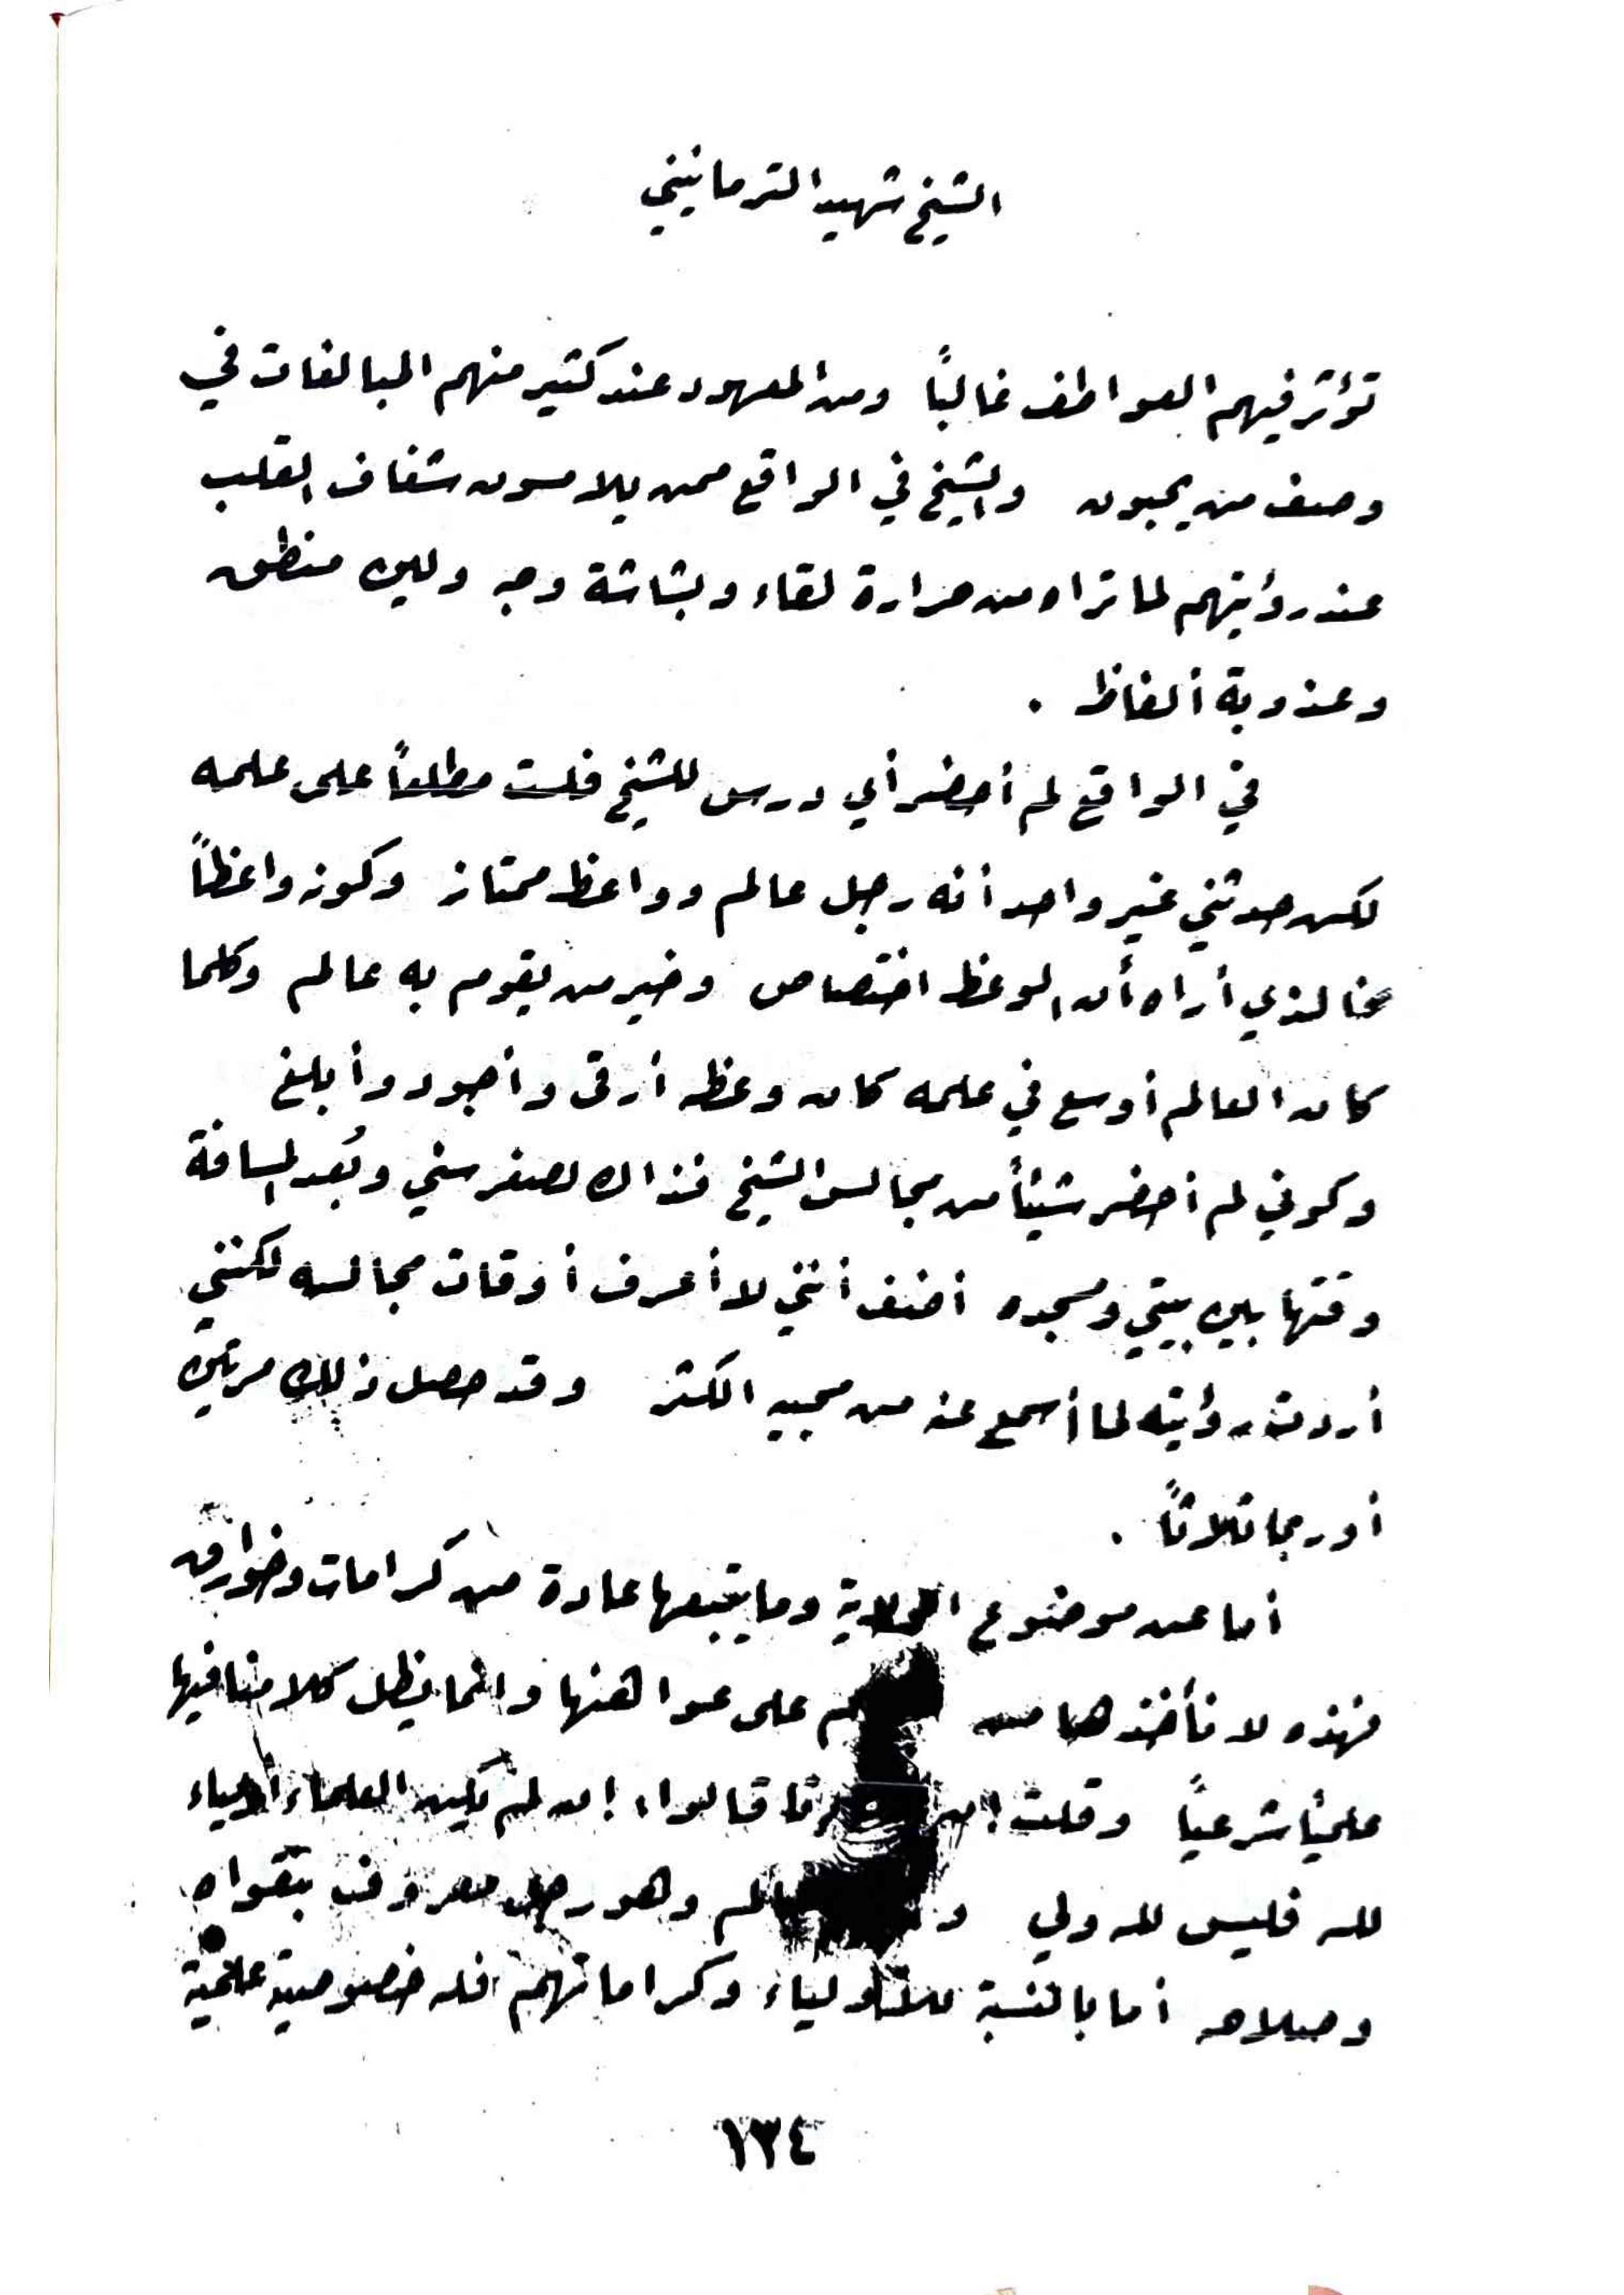 الشيخ شهيد الترمانيني
تؤثر فيهم العواطف غالباً ومن المعهود عند كثير منهم المبالغات في
وصف من يحبون والشيخ في الواقع ممن يلامسون شغاف القلب
عند رؤيتهم لما تراه من حرارة لقاء وبشاشة وجه ولين منطق
وعذوبة ألفاظ .
في الواقع لم أحضر أي درس للشيخ فلست مطلعاً على علمه
لكن حدثني غير واحد أنه رجل عالم وواعظ ممتاز وكونه واعظاً
فالذي أراه أن الوعظ اختصاص وخير من يقوم به عالم وكلما
كان العالم أوسع في علمه كان وعظه أرقى وأجود وأبلغ
وكوني لم أحضر شيئاً من مجالس الشيخ فذاك لصغر سني وبُعد المسافة
وقتها بين بيتي ومسجده أضف أنني لا أعرف أوقات مجالسه لكنني
أردت رؤيته لما أسمع عنه من محبيه الكثر وقد حصل ذلك مرتين
أو ربما ثلاثاً .
أما عن موضوع الولاية وما يتبعها عادة من كرامات وخوارق
فهذه لا نأخذها من على عواهنها وإنما يظل كلامنا فيها
علمياً شرعياً وقلت قالوا إن لم يكن العلماء أولياء
لله فليس لله ولي وهو رجل معروف بتقواه
وصلاحه أما بالنسبة للأولياء وكراماتهم فله خصوصية علمية
١٣٤